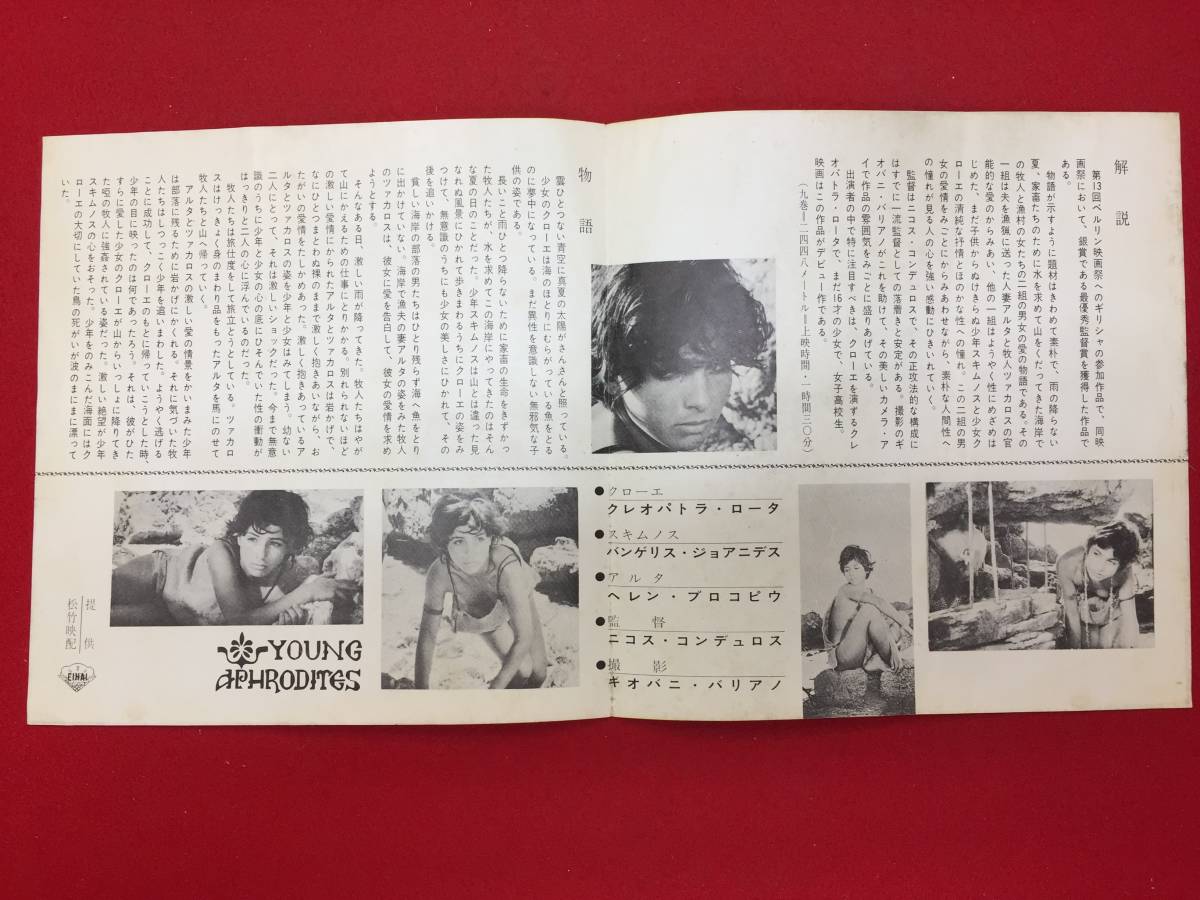 解説
第13回ベルリン映画祭へのギリシャの参加作品で、同映
画祭において、銀賞である最優秀監督賞を獲得した作品で
ある。
物語が示すように題材はきわめて素朴で、雨の降らない
夏、家畜たちのために水を求めて山をくだってきた海岸で
の牧人と漁村の女たちの二組の男女の愛の物語である。その
一組は夫を漁猟に送った人妻アルタと牧人ツァカロスの官
能的な愛のからみあい、他の一組はようやく性にめざめは
じめた、まだ子供からぬけきらぬ少年スキムノスと少女ク
ローエの清純な抒情とほのかな性への憧れ。この二組の男
女の愛情をみごとにからみあわせながら、素朴な人間性へ
の憧れが見る人の心を強い感動にひきいれていく。
監督はニコス・コンデュロスで、その正攻法的な構成に
はすでに一流監督としての落着きと安定がある。撮影のギ
オバニ・バリアノがこれを助けて、その美しいカメラ・ア
イで作品の雰囲気をみごとに盛りあげている。
出演者の中で特に注目すべきは、クローエを演ずるクレ
オパトラ・ロータで、まだ16才の少女で、女子高校生。
映画はこの作品がデビュー作である。
（九巻＝二四四八メートル＝上映時間・一時間三〇分）
物語
雲ひとつない青空に真夏の太陽がさんさんと照っている。
少女のクローエは海のほとりにむらがっている魚をとる
のに夢中になっている。まだ異性を意識しない無邪気な子
供の姿である。
長いこと雨ひとつ降らないために家畜の生命をきずかっ
た牧人たちが、水を求めてこの海岸にやってきたのはそん
な夏の日のことだった。少年スキムノスは山とは違った見
なれぬ風景にひかれて歩きまわるうちにクローエの姿をみ
つけて、無意識のうちにも少女の美しさにひかれて、その
後を追いかける。
貧しい海岸の部落の男たちはひとり残らず海へ魚をとり
に出かけていない。海岸で漁夫の妻アルタの姿をみた牧人
のツァカロスは、彼女に愛を告白して、彼女の愛情を求め
ようとする。
そんなある日、激しい雨が降ってきた。牧人たちはやが
て山にかえるための仕事にとりかかる。別れられないほど
の激しい愛情にかられたアルタとツァカロスは岩かげで、
なにひとつまとわぬ裸のままで激しく抱きあいながら、お
たがいの愛情をたしかめあった。激しく抱きあっているア
ルタとツァカロスの姿を少年と少女はみてしまう。幼ない
二人にとって、それは激しいショックだった。今まで無意
識のうちに少年と少女の心の底にひそんでいた性の衝動が
はっきりと二人の心に浮んでいるのだった。
牧人たちは旅仕度をして旅立とうとしている。ツァカロ
スはけっきょく身のまわり品をもったアルタを馬にのせて
牧人たちと山へ帰っていく。
アルタとツァカロスの激しい愛の情景をかいまみた少年
は部落に残るために岩かげにかくれる。それに気づいた牧
人たちはしつっこく少年を追いまわした。ようやく逃げる
ことに成功して、クローエのもとに帰っていこうとした時、
少年の目に映ったのは何であったろう。それは、彼がひた
すらに愛した少女のクローエが山からいっしょに降りてき
た啞の牧人に強姦されている姿だった。激しい絶望が少年
スキムノスの心をおそった。少年をのみこんだ海面にはク
ローエの大切にしていた鳥の死がいが波のまにまに漂って
いた。
●クローエ
クレオパトラ・ロータ
●スキムノス
バンゲリス・ジョアニデス
●アルタ
ヘレン・プロコピウ
●監督
ニコス・コンデュロス
●撮影
ギオバニ・バリアノ
YOUNG
APHRODITES
提供
松竹映配
EIHAI